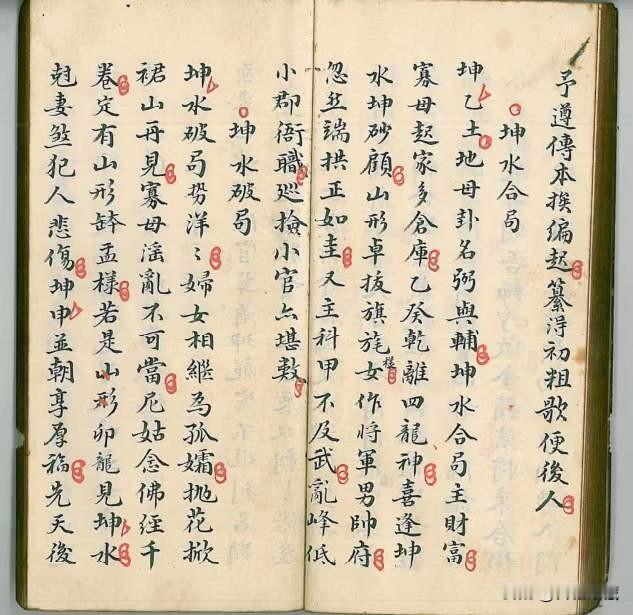 予遵傳本挨編起纂得初粗歌便後人
坤水合局
坤乙土地母卦名弼與輔坤水合局主財富
寡母起家多倉庫乙癸乾離四龍神喜逢坤
水坤砂顧山形卓拔旗旄樣女作將軍男帥府
忽然端拱正如圭又主科甲不及武亂峰低
小郡衙職巡撿小官亦堪數
坤水破局
坤水破局势洋〻婦女相繼為孤孀抛花掀
裙山再見寡母滛亂不可當尼姑念佛經千
卷定有山形缽盂樣若是山形卯龍見坤水
尅妻煞犯人悲傷坤申並朝享厚福先天後